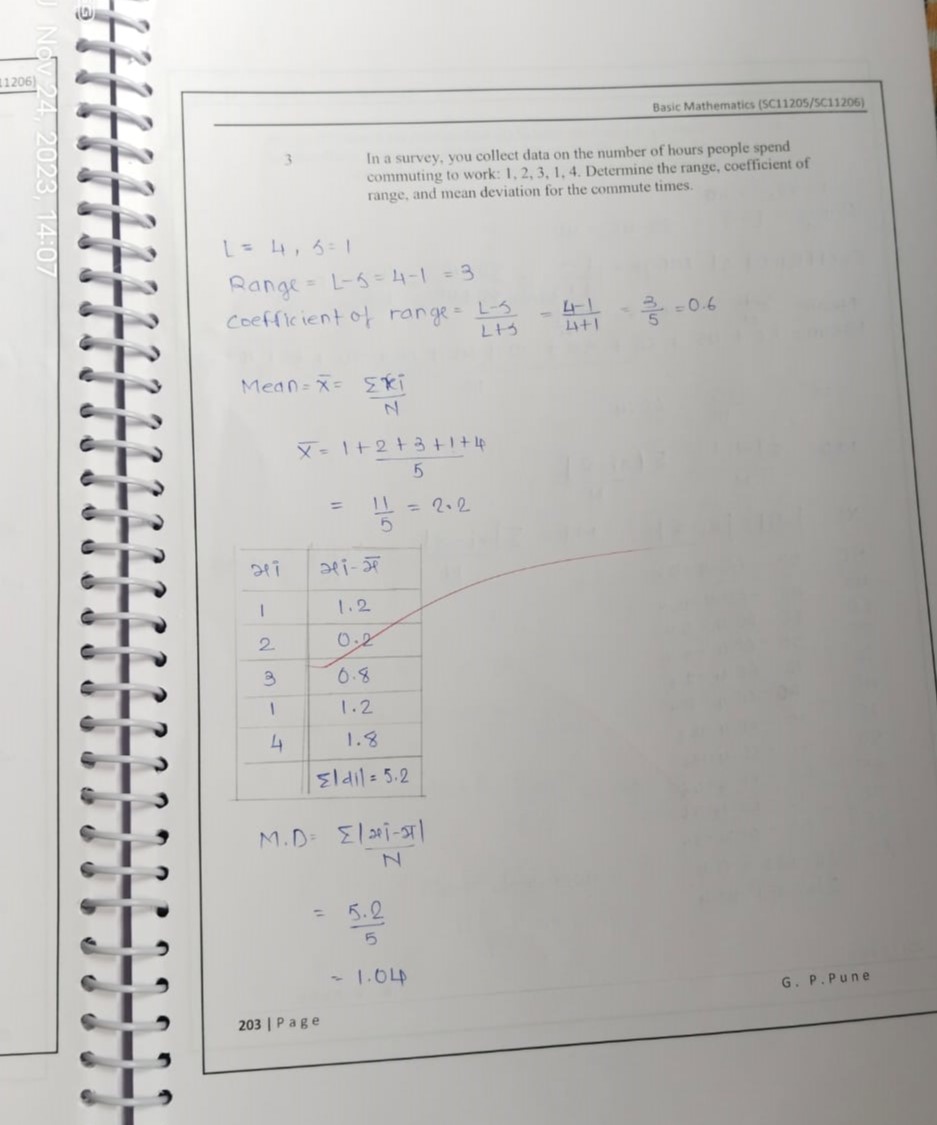 Nov 24, 2023, 14:07
11206)
Basic Mathematics (SC11205/SC11206)
3 In a survey, you collect data on the number of hours people spend
commuting to work: 1, 2, 3, 1, 4. Determine the range, coefficient of
range, and mean deviation for the commute times.
L = 4, S = 1
Range = L-S = 4-1 = 3
Coefficient of range = L-S / L+S = 4-1 / 4+1 = 3/5 = 0.6
Mean = x̄ = Σxi / N
x̄ = 1+2+3+1+4 / 5
= 11/5 = 2.2
xi xi-x̄
1 1.2
2 0.2
3 0.8
1 1.2
4 1.8
Σ|di| = 5.2
M.D = Σ|xi-x̄| / N
= 5.2 / 5
= 1.04
G. P. Pune
203 | Page